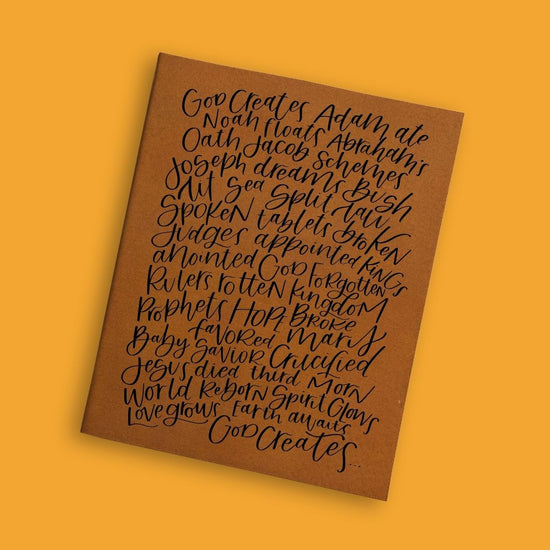 God Creates Adam ate
Noah floats Abraham's
Oath Jacob schemes
Joseph dreams Bush
lit sea split law
spoken tablets broken
Judges appointed Kings
anointed God Forgotten
Rulers rotten Kingdom
Prophets Hope Broke
favored Mary
Baby Savior Crucified
Jesus died third Morn
World Reborn Spirit Glows
Love grows Earth awaits
God Creates...